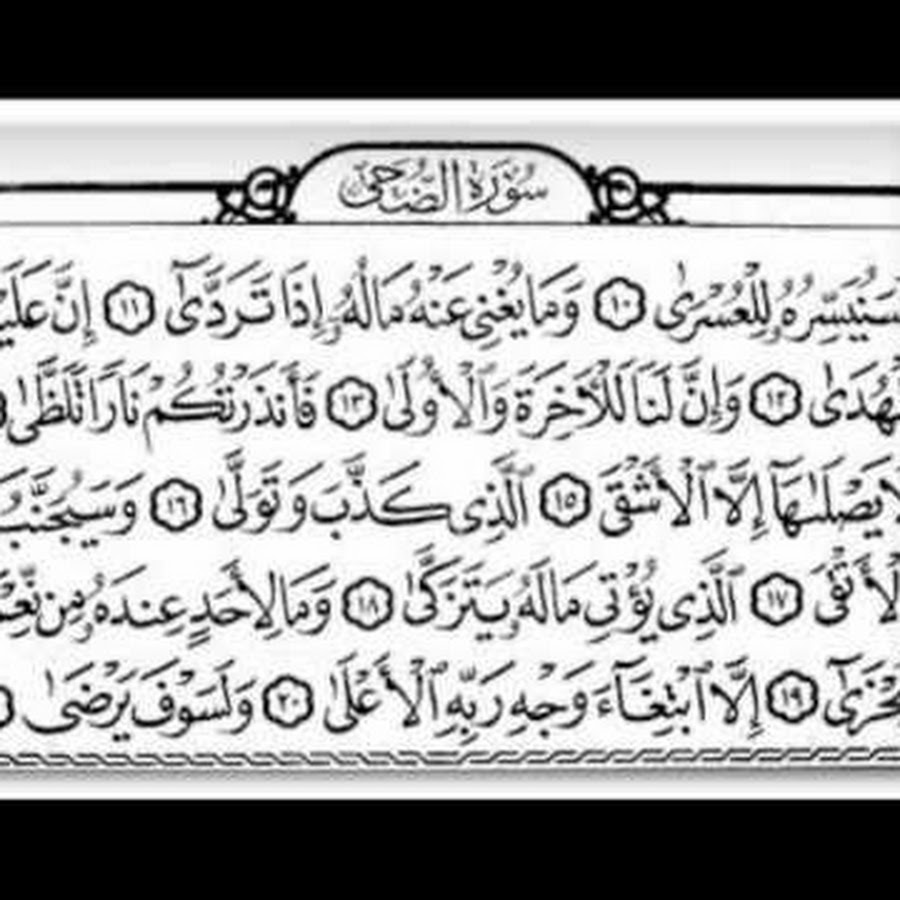 سُورَةُ الضُّحَىٰ
فَسَنُيَسِّرُهُۥ لِلْعُسْرَىٰ ١٠ وَمَا يُغْنِى عَنْهُ مَالُهُۥٓ إِذَا تَرَدَّىٰٓ ١١ إِنَّ
١٢ وَإِنَّ لَنَا لَلْءَاخِرَةَ وَٱلْأُولَىٰ ١٣ فَأَنذَرْتُكُمْ نَارًا تَلَظَّىٰ
لَا يَصْلَىٰهَآ إِلَّا ٱلْأَشْقَى ١٥ ٱلَّذِى كَذَّبَ وَتَوَلَّىٰ ١٦
١٧ ٱلَّذِى يُؤْتِى مَالَهُۥ يَتَزَكَّىٰ ١٨ وَمَا لِأَحَدٍ عِندَهُۥ مِن
١٩ إِلَّا ٱبْتِغَآءَ وَجْهِ رَبِّهِ ٱلْأَعْلَىٰ ٢٠ وَلَسَوْفَ يَرْضَىٰ